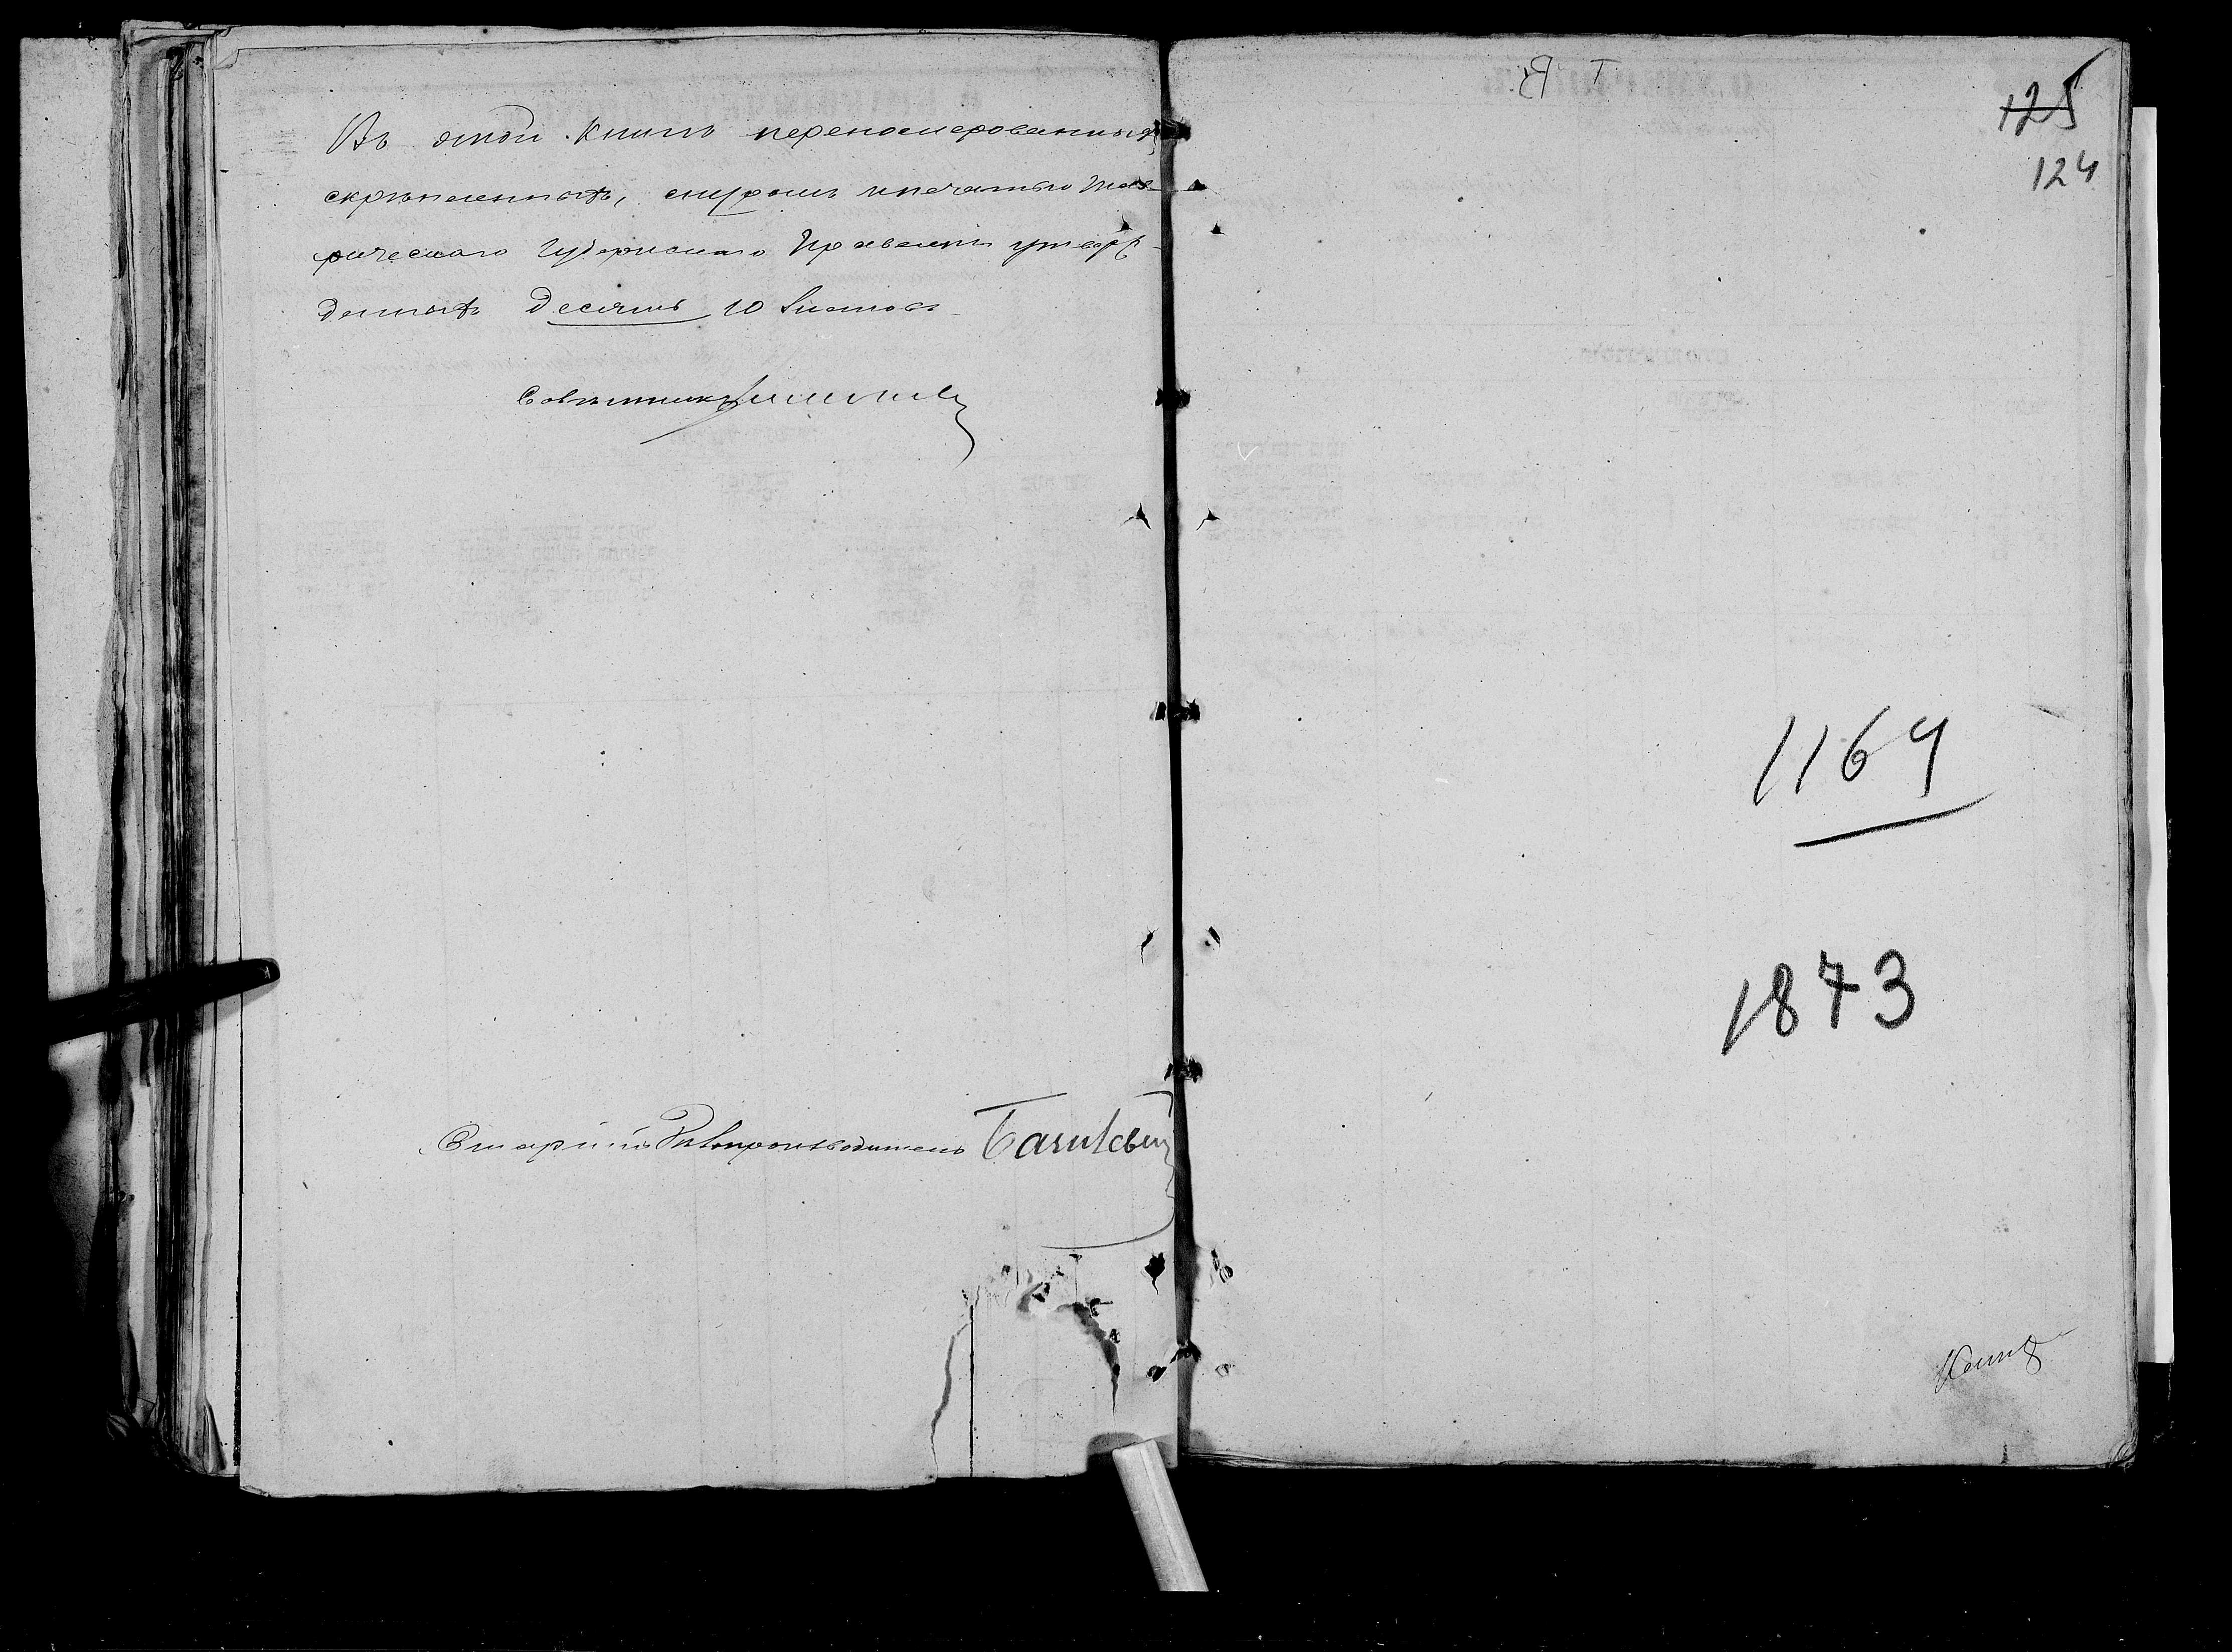 Въ этой книгѣ перенумерованныхъ,
скрѣпленныхъ, шнуромъ и печатью Тав-
рическаго Губернскаго Правленія утверж-
денныхъ десять 10 листовъ
Совѣтникъ
Старшій Дѣлопроизводитель
125
124
1164
1873